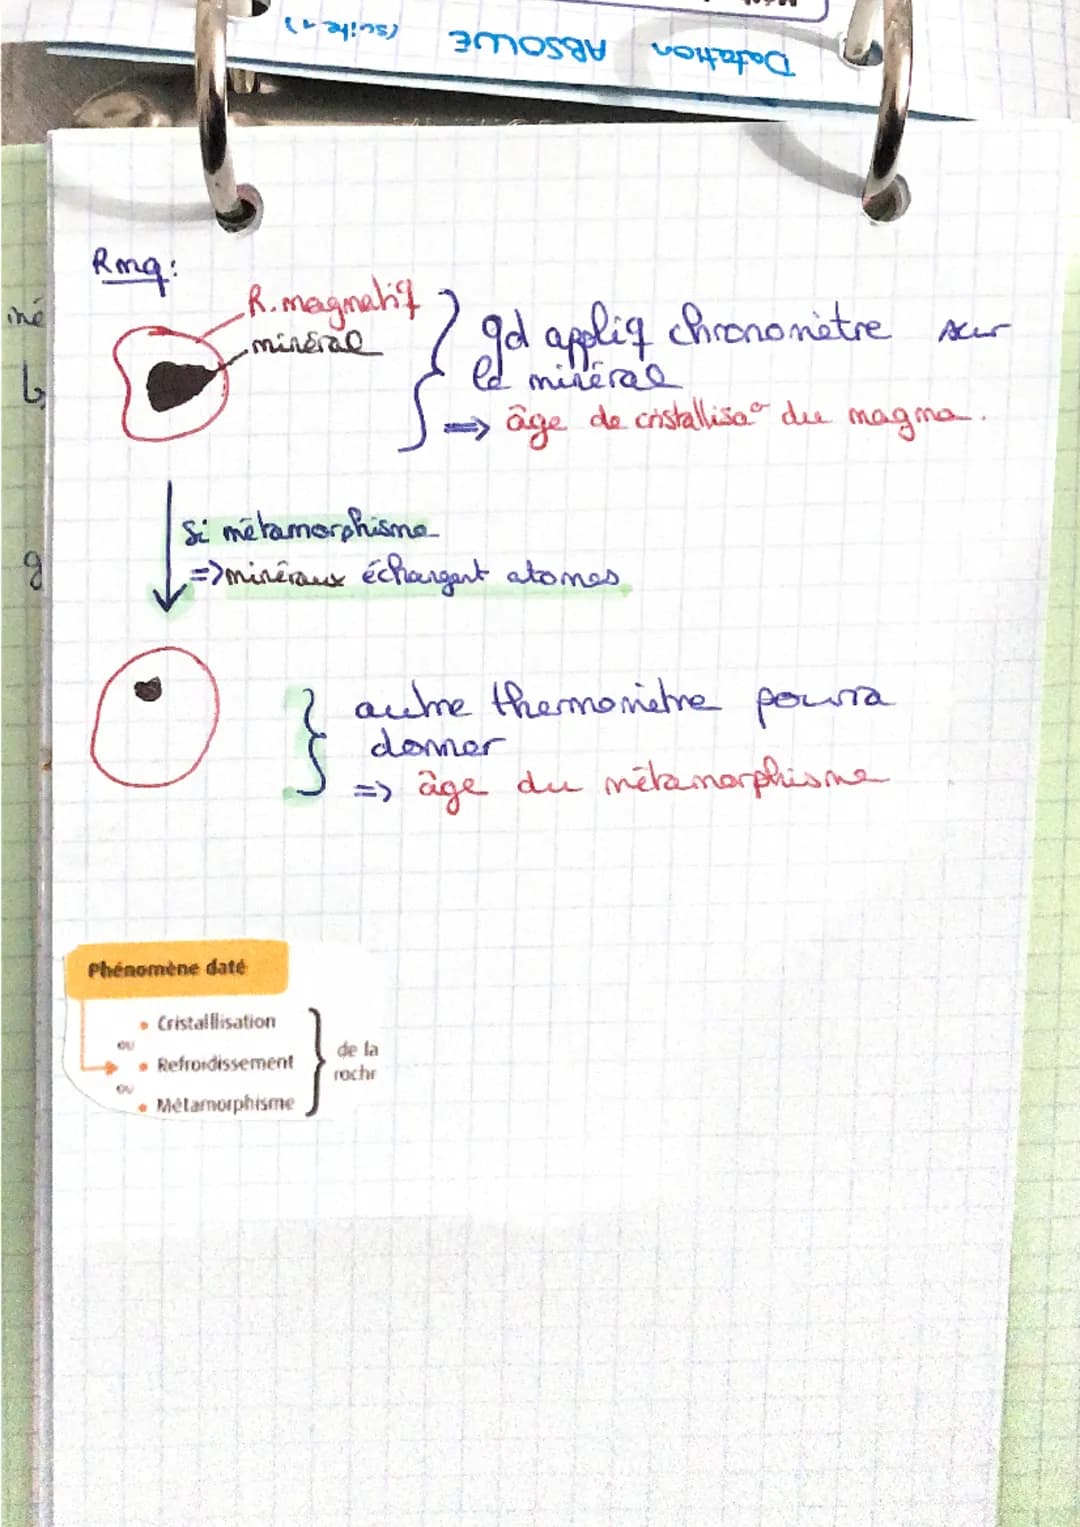 Datation ABSOLUE (suite 1)
Rmq:
R. magmatiq
minéral
qd appliq chronomètre sur
le minéral
=> âge de cristallisa° du magma.
Si métamorphisme
=> minéraux échangent atomes
autre thermomètre pourra
donner
=> âge du métamorphisme
Phénomène daté
• Cristallisation
ou
• Refroidissement
ou
• Métamorphisme
de la
roche